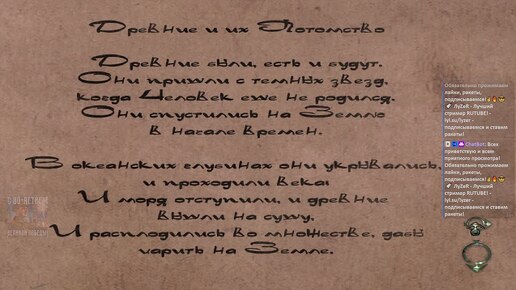 Древние и их Потомство
Древние были, есть и будут.
Они пришли с темных звезд,
когда Человек еще не родился.
Они спустились на Землю
в начале времен.
В океанских глубинах они укрывались,
и проходили века:
И моря отступили, и древние
вышли на сушу.
И расплодились во множестве, дабы
царить на Земле.
Обязательно прожимаем
лайки, ракеты,
подписываемся!
ЛуZеR - Лучший
стример RUTUBE! -
lyl.su/lyzer -
подписываемся и ставим
ракеты!
ChatBot: Всех
приветствую и всем
приятного просмотра!
Обязательно прожимаем
лайки, ракеты,
подписываемся!
ЛуZеR - Лучший
стример RUTUBE! -
lyl.su/lyzer -
подписываемся и ставим
ракеты!